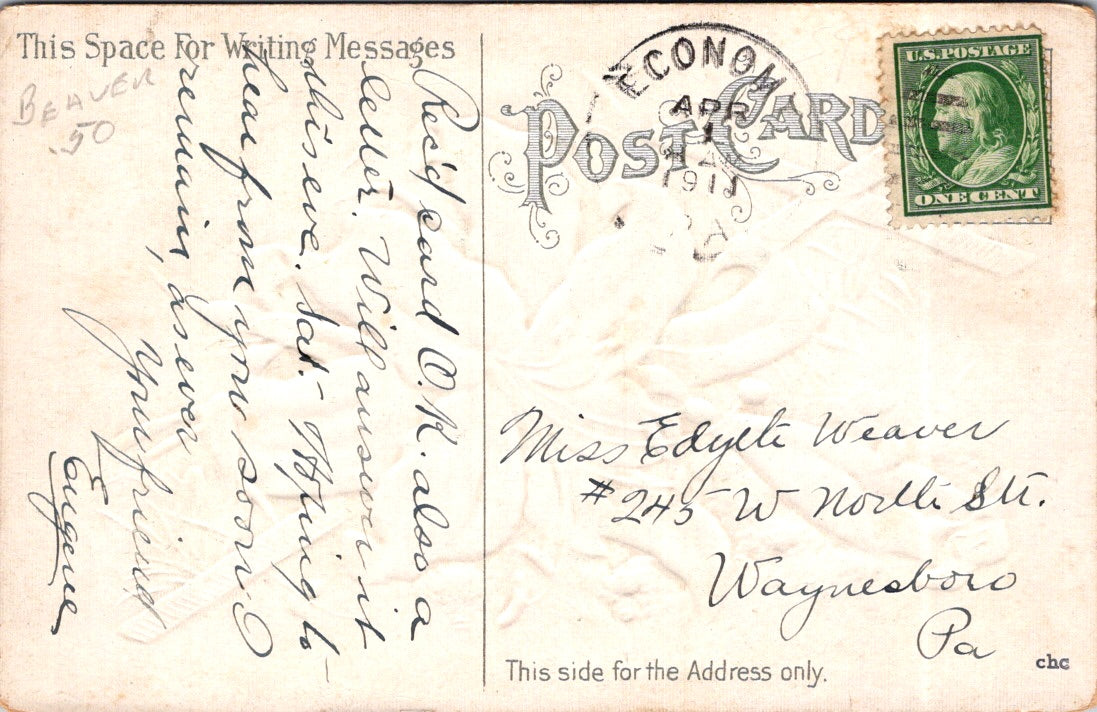 This Space For Writing Messages
BEAVER
.50
Rec'd card O.K. also a
letter. Will answer it
this eve. Sat. Hoping to
hear from you soon I
remain, as ever
Your friend
Eugene
POST CARD
ECONOM
APR
1
AM
1911
PA
U.S. POSTAGE
ONE CENT
Miss Edyth Weaver
#245 W North Str.
Waynesboro
Pa
This side for the Address only.
chc